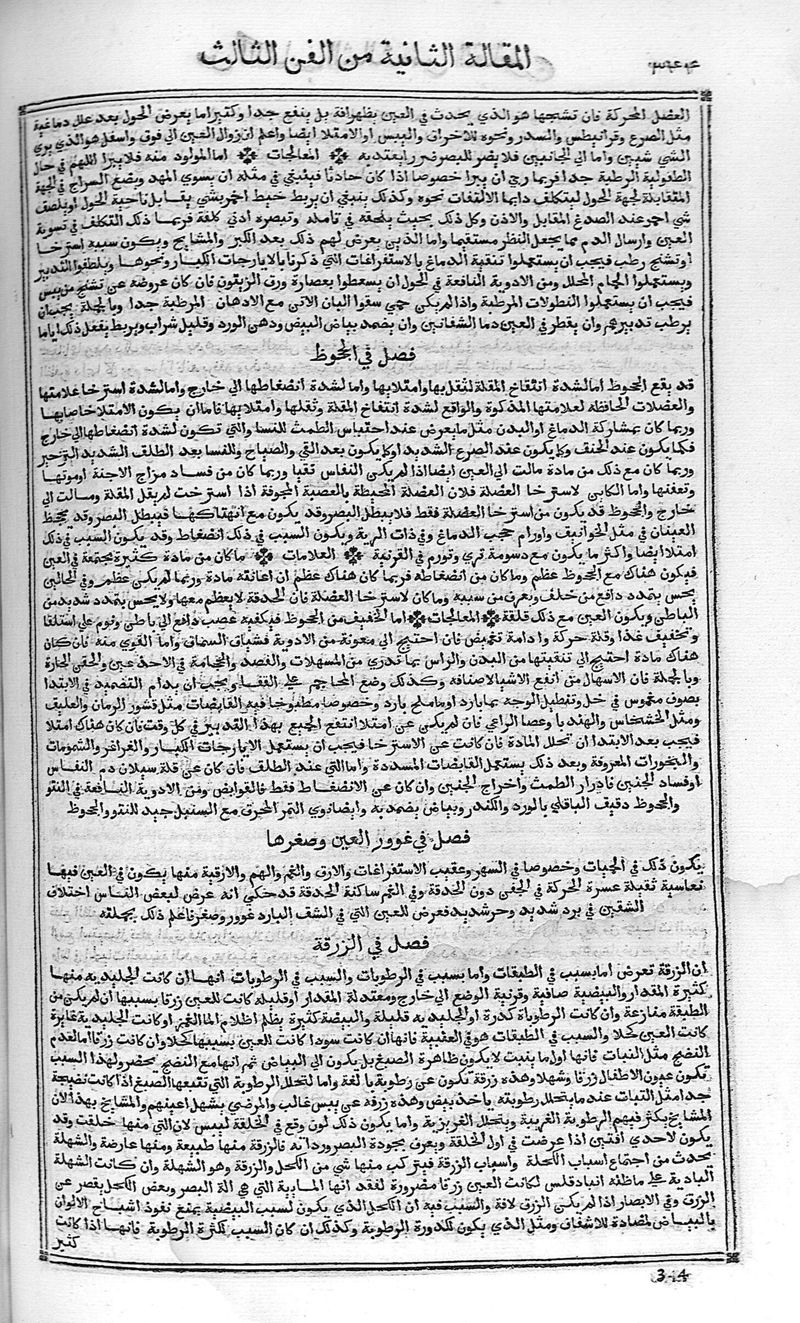 المقالة الثانية من الفن الثالث
٣٤٤
العضل المحركة فان تشنجها هو الذي يحدث في العين بطرافة بل ينفع جدا وكثيرا ما يعرض الحول بعد علل دماغية
مثل الصرع وقرانيطس والسدر ونحوه للاحراق واليبس او الامتلا ايضا واعلم ان زوال العين الي فوق واسفل هو الذي يري
الشي شيين واما الي الجانبين فلا يضر البصر ضررا يعتد به المعالجات اما المولود منه فلا يبرا اللهم في حال
الطفولية الرطبة جدا فربما رجي ان يبرا خصوصا اذا كان حادثا فينبغي في مثله ان يسوي المهد ويضع السراج في الجهة
المتقابلة لجهة الحول ليتكلف دايما الالتفات نحوه وكذلك ينبغي ان يربط خيط احمر بشي يقابل ناحية الحول او يلصق
شي احمر عند الصدغ المقابل والاذن وكل ذلك بحيث يلحقه في تامله وتبصره ادني كلفة فربما ذلك التكلف في تسوية
العين وارسال الدم مما يجعل النظر مستقيما واما الذين يعرض لهم ذلك بعد الكبر والمشايخ ويكون سببه استرخا
او تشنج رطب فيجب ان يستعملوا تنقية الدماغ بالاستفراغات التي ذكرنا بالايارجات الكبار ونحوها ويلطفوا التدبير
ويستعملوا الحمام المحلل ومن الادوية النافعة في الحول ان يسعطوا بعصارة ورق الزيتون فان كان عروضه عن تشنج من يبس
فيجب ان يستعملوا النطولات المرطبة واذا لم يكن حمي سقوا البان الاتن مع الادهان المرطبة جدا وبالجملة يجب ان
يرطب تدبيرهم وان يقطر في العين دما الشفانين وان يضمد ببياض البيض ودهن الورد وقليل شراب ويربط يفعل ذلك اياما
فصل في الجحوظ
قد يقع الجحوظ اما لشدة انتفاخ المقلة لثقل بها وامتلا بها واما لشدة انضغاطها الي خارج واما لشدة استرخا علامتها
والعضلات الحافظة لعلامتها المذكورة والواقع لشدة انتفاخ المقلة وثقلها وامتلا بها فاما ان يكون الامتلا خاصا بها
وربما كان بمشاركة الدماغ او البدن مثل ما يعرض عند احتباس الطمث للنسا والتي تكون لشدة انضغاطها الي خارج
فكما يكون عند الخنق وكما يكون عند الصرع الشديد او كما يكون بعد القي والصياح وللنسا بعد الطلق الشديد التزحير
وربما كان مع ذلك من مادة مالت الي العين ايضا اذا لم يكن النفاس نقيا وربما كان من فساد مزاج الاجنة او موتها
وتعفنها واما الكاين لاسترخا العضلة فلان العضلة المحيطة بالعصبة المجوفة اذا استرخت لم يقل المقلة ومالت الي
خارج والجحوظ قد يكون من استرخا العضلة فقط فلا يبطل البصر وقد يكون مع انهتاكها فيبطل البصر وقد يجحظ
العينان في مثل الخوانيق واورام حجب الدماغ وفي ذات الرية ويكون السبب في ذلك انضغاط وقد يكون السبب في ذلك
امتلا ايضا واكثر ما يكون مع دسومة تري وتورم في القرنية العلامات ما كان من مادة كثيرة مجتمعة في العين
فيكون هناك مع الجحوظ عظم وما كان من انضغاطه فربما كان هناك عظم ان اعانته مادة وربما لم يكن عظم وفي الحالين
يحس بتمدد دافع من خلف ويعرف من سببه وما كان لاسترخا العضلة فان الحدقة لا يعظم معها ولا يحس بتمدد شديد من
الباطن ويكون العين مع ذلك قلقة المعالجات اما الخفيف من الجحوظ فيكفيه عصب دافع الي باطن ونوم علي استلقا
وتخفيف غذا وقلة حركة وادامة تغميض فان احتيج الي معونة من الادوية فشياف السماق واما القوي منه فان كان
هناك مادة احتيج الي تنقيتها من البدن والراس بما تدري من المسهلات والفصد والحجامة في الاخدعين والحقن الحارة
وبالجملة فان الاسهال من انفع الاشيا لاصنافه وكذلك وضع المحاجم علي القفا ويجب ان يدام التضميد في الابتدا
بصوف مغموس في خل وتنطيل الوجه بما بارد او ما ملح بارد وخصوصا مطبوخا فيه القابضات مثل قشور الرمان والعليق
ومثل الخشخاش والهندبا وعصا الراعي فان لم يكن عن امتلا انتفع الجميع بهذا التدبير في كل وقت فان كان هناك امتلا
فيجب بعد الابتدا ان تحلل المادة فان كانت عن الاسترخا فيجب ان يستعمل الايارجات الكبار والغراغر والشمومات
والبخورات المعروفة وبعد ذلك يستعمل القابضات المسددة واما التي عند الطلق فان كان عن قلة سيلان دم النفاس
او فساد الجنين فادرار الطمث واخراج الجنين وان كان عن الانضغاط فقط فالقوابض ومن الادوية النافعة في النتو
والجحوظ دقيق الباقلي بالورد والكندر وبياض يضمد به وايضا نوي التمر المحرق مع السنبل جيد للنتو والجحوظ
فصل في غوور العين وصغرها
يكون ذلك في الحميات وخصوصا في السهر وعقيب الاستفراغات والارق والغم والهم والارقية منها يكون في العين فيها
نعاسية ثقيلة عسرة الحركة في الجفن دون الحدقة وفي الغم ساكنة الحدقة قد حكي انه عرض لبعض الناس اختلاف
الشقين في برد شديد وحر شديد فعرض للعين التي في الشق البارد غوور وصغر فاعلم ذلك بجملته
فصل في الزرقة
ان الزرقة تعرض اما بسبب في الطبقات واما بسبب في الرطوبات والسبب في الرطوبات انها ان كانت الجليدية منها
كثيرة المقدار والبيضية صافية وقريبة الوضع الي خارج ومعتدلة المقدار او قليله كانت للعين زرقا بسببها ان لم يكن من
الطبقة منازعة وان كانت الرطوبة كدرة او الجليديه قليلة والبيضة كثيرة يظلم اظلام الما الغمر او كانت الجليدية غايرة
كانت العين كحلا والسبب في الطبقات هو في العنبية فانها ان كانت سودا كانت العين بسببها كحلا وان كانت زرقا اما لعدم
النضج مثل النبات فانها اول ما ينبت لا يكون ظاهرة الصبغ بل يكون الي البياض ثم انها مع النضج يحضر ولهذا السبب
تكون عيون الاطفال زرقا وشهلا وهذه زرقة تكون عن رطوبة بالغة واما لتحلل الرطوبة التي تتبعها الصبغ اذا كانت نضيجة
جدا مثل النبات عند ما يتحلل رطوبته ياخذ يبيض وهذه زرقه عن يبس غالب والمرضي يشهل اعينهم والمشايخ بهذا لان
المشايخ يكثر فيهم الرطوبة الغريبة ويتحلل الغريزية واما يكون ذلك لون وقع في الخلقة ليس لان التي منها خلقت وقد
يكون لاحدي افتين اذا عرضت في اول الخلقة ويعرف بجودة البصر ورداته فالزرقة منها طبيعة ومنها عارضة والشهلة
يحدث من اجتماع اسباب الكحلة واسباب الزرقة فيتركب منها شي من الكحل والزرقة وهو الشهلة وان كانت الشهلة
البادية علي ما ظنه انبادقلس لكانت العين زرقا مضرورة لفقد انها المايية التي هي الة البصر وبعض الكحل يقصر عن
الزرق وفي الابصار اذا لم يكن الزرق لافة والسبب فيه ان الكحل الذي يكون لسبب البيضية يمنع نفوذ اشباح الالوان
بالبياض لمضادة للاشفاف ومثل الذي يكون لكدورة الرطوبة وكذلك ان كان السبب لكثرة الرطوبة فانها اذا كانت
كثير
344